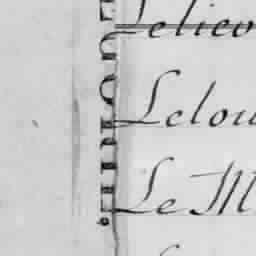 Leliev
Lelou
Le M